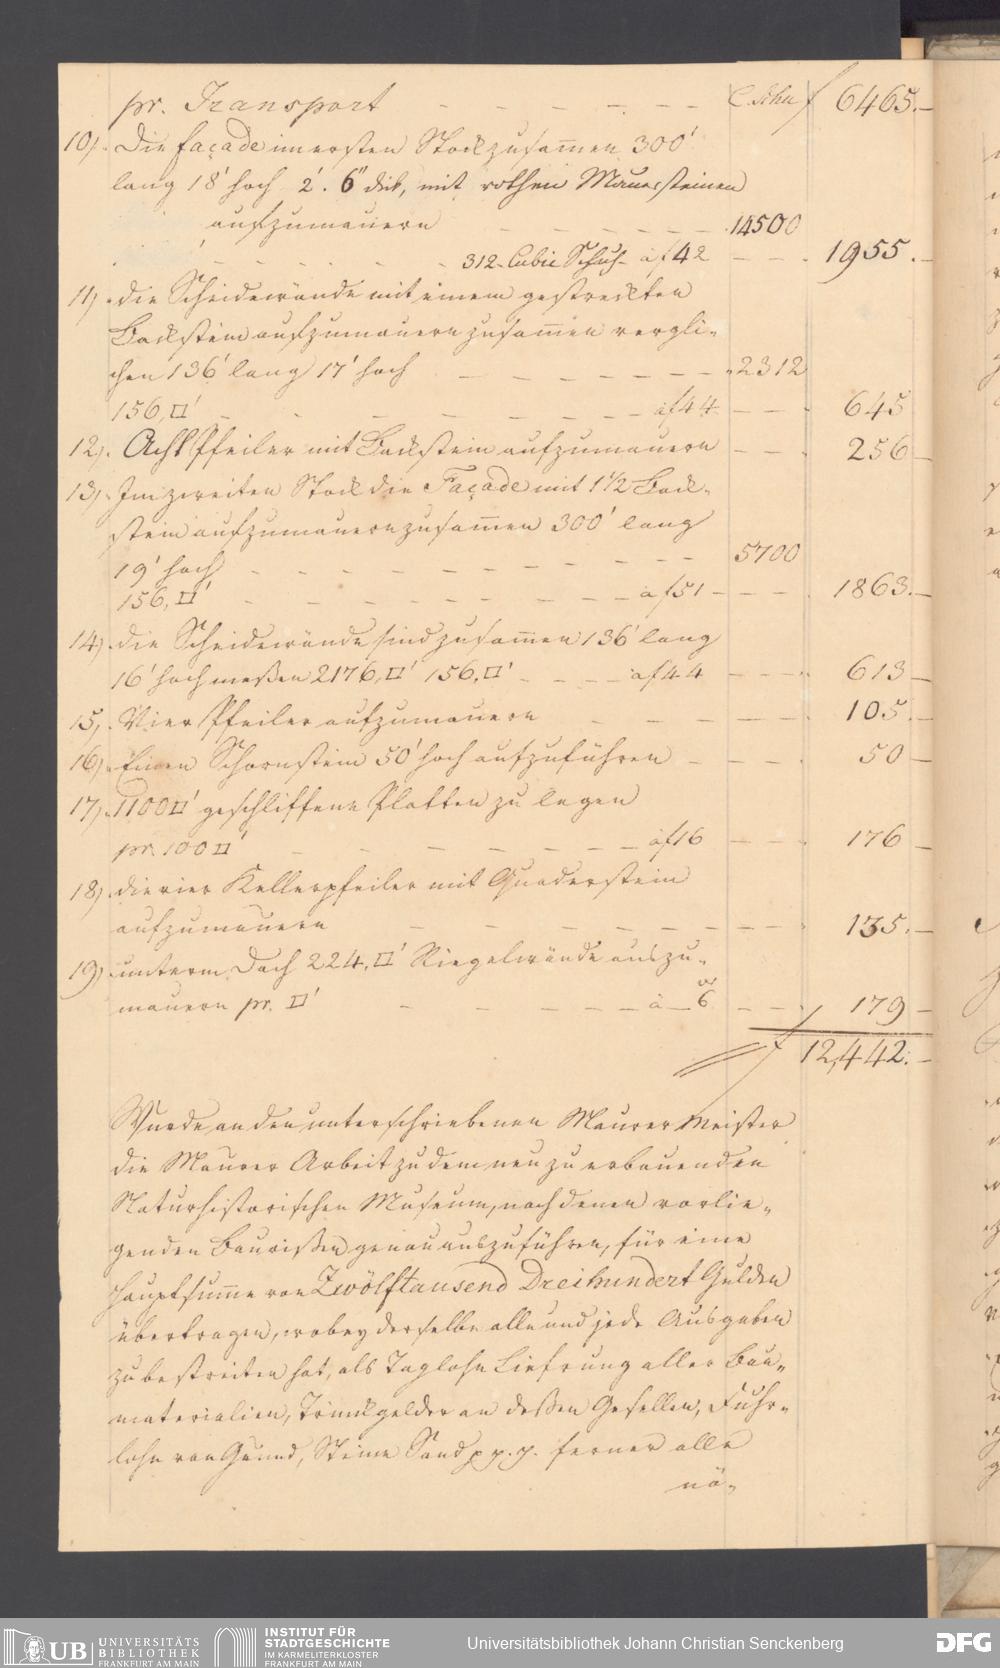 pr. Transport – – – – – – – C. Schu f 6465.–
10). Die façade im ersten Stock zusam̄en 300'
lang 18' hoch 2'. 6" dick, mit rothen Mauersteinen
aufzumauern – – – – – – 14500
– – – – – – 312 Cubic Schuh à f 42 – – – 1955.–
11). die Scheidewände mit einem gestreckten
Backstein aufzumauern zusam̄en vergli-
chen 136' lang 17' hoch – – – – – – – 2312
156,□' – – – – – – – à f 44 – – – 645
12). Acht Pfeiler mit Backstein aufzumauern – – – 256 –
13). Im zweiten Stock die Façade mit 1½ Back-
stein aufzumauern zusam̄en 300' lang
19' hoch – – – – – – – – – 5700
156,□' – – – – – – – à f 51 – – – 1863.–
14). die Scheidewände sind zusam̄en 136' lang
16' hoch meßen 2176,□' 156,□' – – – – à f 44 – – – 613 –
15). Vier Pfeiler aufzumauern – – – – – – 105.–
16). Einen Schornstein 50' hoch aufzuführen – – – – 50 –
17). 1100□' geschliffene Platten zu legen
pr. 100□' – – – – – – – à f 16 – – – 176 –
18). die vier Kellerpfeiler mit Quaderstein
aufzumauern – – – – – – – – – 135.–
19). unterm Dach 224,□' Riegelwände auszu-
mauern pr. □' – – – – – – à 6 – – – 179 –
f 12,442.–
Wurde an den unterschriebenen Maurer Meister
die Maurer Arbeit zu dem neu zu erbauenden
Naturhistorischen Museum, nach denen vorlie-
genden Baurißen genau auszuführen, für eine
Hauptsum̄e von Zwölftausend Dreihundert Gulden
übertragen, wobey derselbe alle und jede Ausgaben
zu bestreiten hat, als Taglohn Lieferung aller Bau-
materialien, Trinkgelder an deßen Gesellen, Fuhr-
lohn von Grund, Steine Sand p.p.p. ferner alle
nö-
UB UNIVERSITÄTS
BIBLIOTHEK
FRANKFURT AM MAIN
INSTITUT FÜR
STADTGESCHICHTE
IM KARMELITERKLOSTER
FRANKFURT AM MAIN
Universitätsbibliothek Johann Christian Senckenberg
DFG